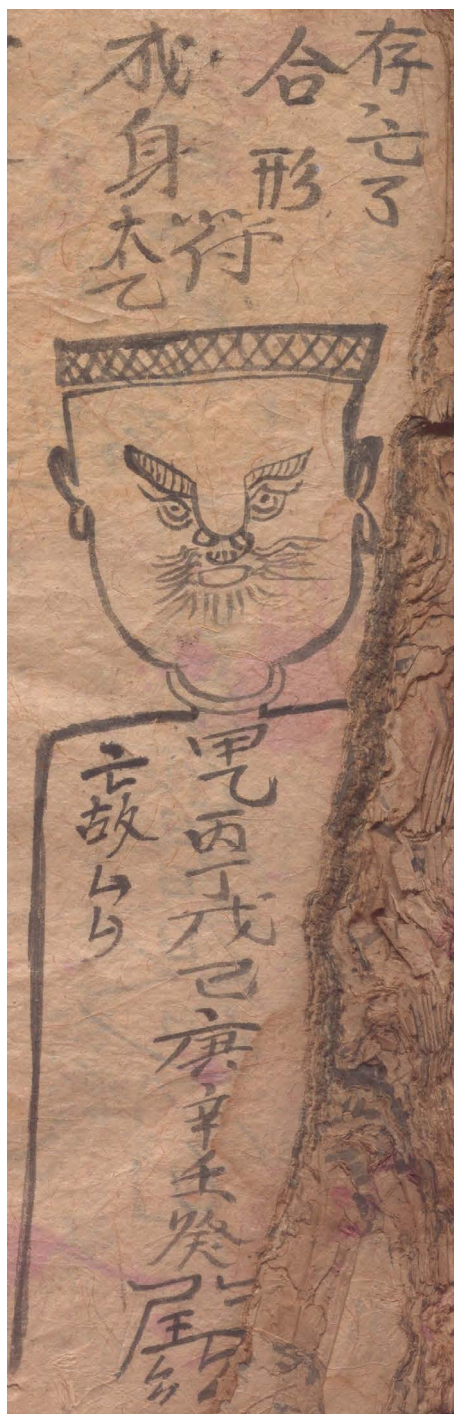 存亡了
合形符
成身太乙
甲乙丙丁戊己庚辛壬癸
亡故厶厶